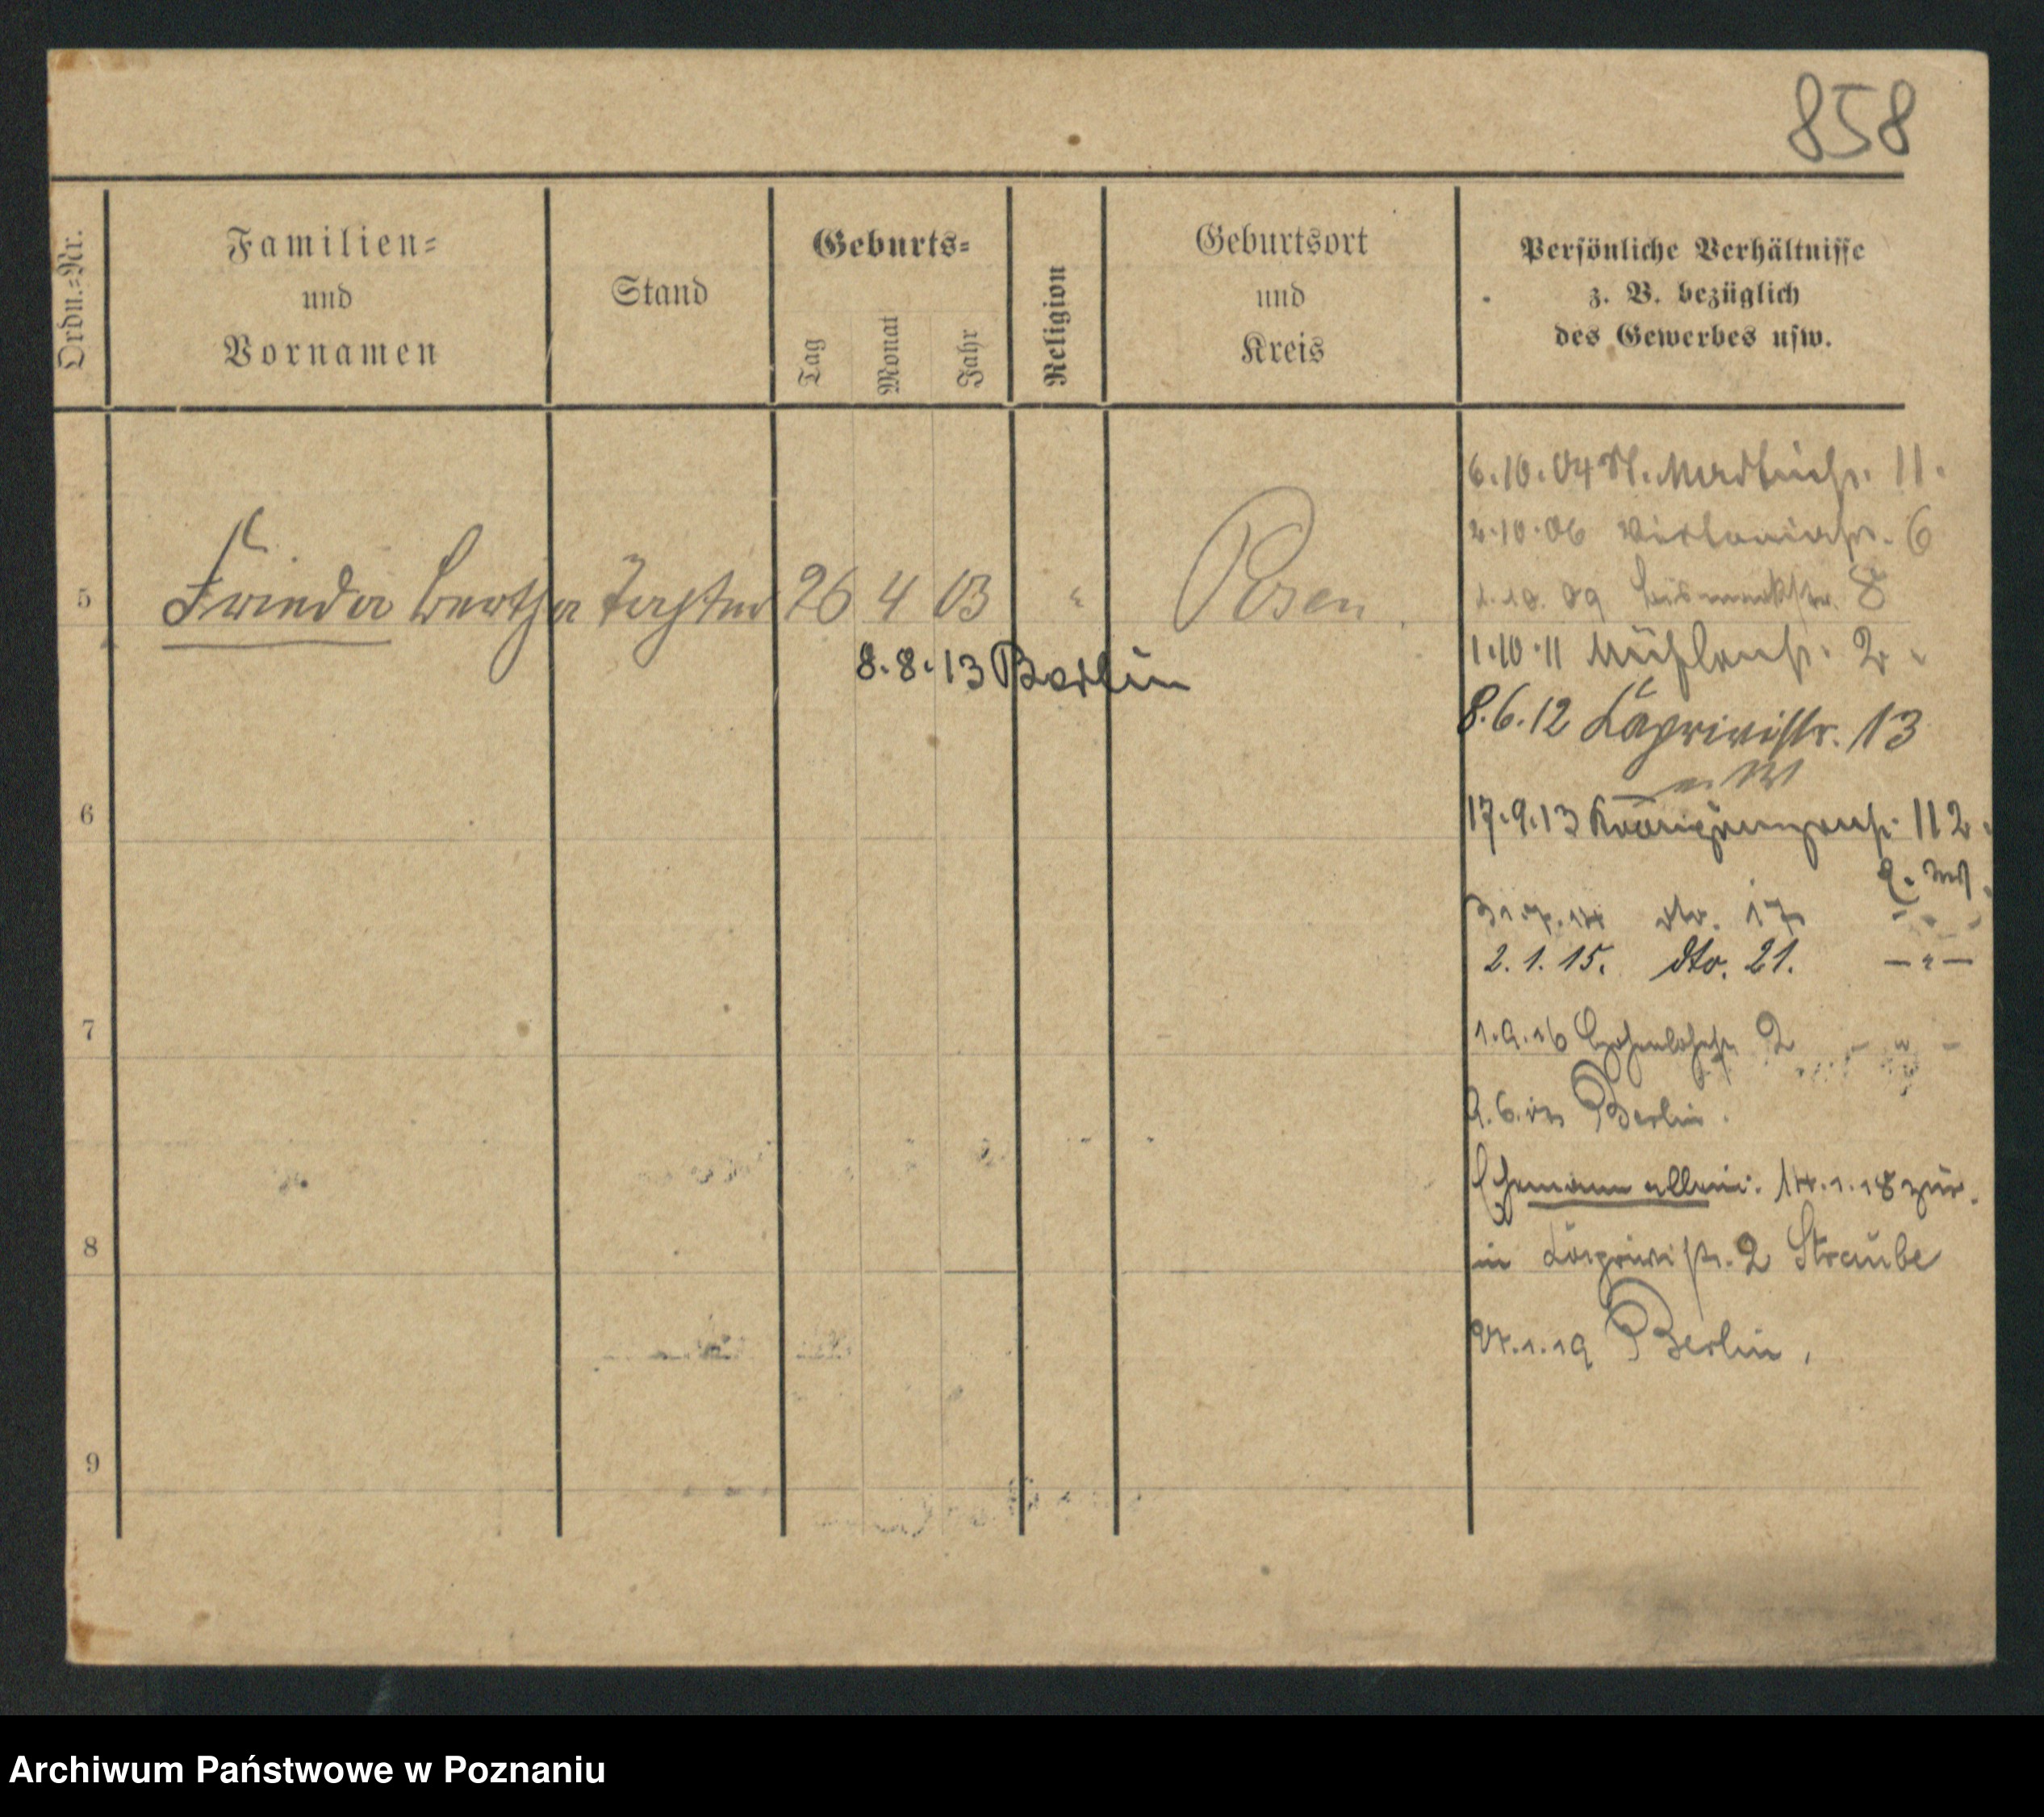 858
Ordn.-Nr.
Familien-
und
Vornamen
Stand
Geburts-
Tag
Monat
Jahr
Religion
Geburtsort
und
Kreis
Persönliche Verhältnisse
z. B. bezüglich
des Gewerbes usw.
5 Frieda Bertha Tochter 26 4 03 " Posen.
8.8.13 Berlin
6
7
8
9
6.10.04 St. Martinstr. 11.
2.10.06 Viktoriastr. 6
1.10.09 Bismarckstr. 8
1.10.11 Mühlenstr. 2
8.6.12 Kaprivistr. 13
17.9.13 112
31.7.14 dto. 17
2.1.15. dto. 21. — " —
1.9.16 Hohenlohestr. 2 - " -
9.6. Berlin.
Ehemann allein. 14.1.18 zur.
in Kaprivistr. 2 Straube
1.19 Berlin.
Archiwum Państwowe w Poznaniu